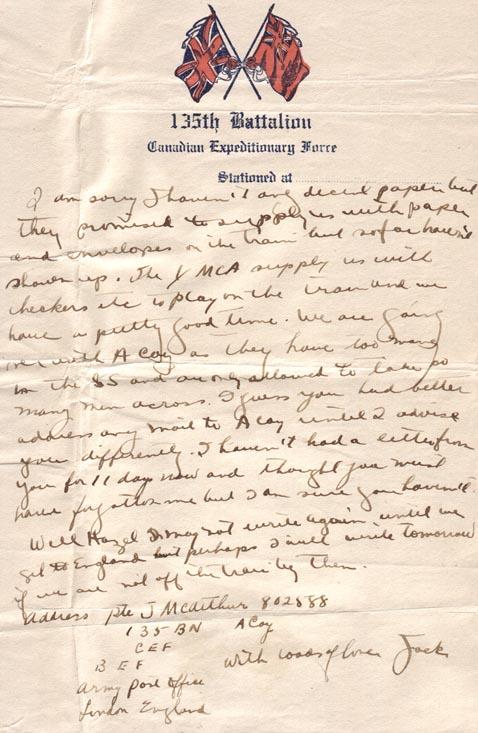 135th Battalion
Canadian Expeditionary Force
Stationed at
I am sorry I haven't any decent paper but
they promised to supply us with paper
and envelopes on the train but so far haven't
shown up. The Y MCA supply us with
checkers etc to play on the train and we
have a pretty good time. We are going
over with A Coy as they have too many
in the B5 and are only allowed to take so
many men across. I guess you had better
address any mail to A Coy until I advise
you differently. I haven't had a letter from
you for 11 days now and thought you must
have forgotten me but I am sure you haven't.
Well Hazel I may not write again until we
get to England but perhaps I will write tomorrow
if we are not off the train by then.
Address Pte J McArthur 802888
135 BN A Coy
CEF
B E F
Army Post Office
London England
with loads of love Jack